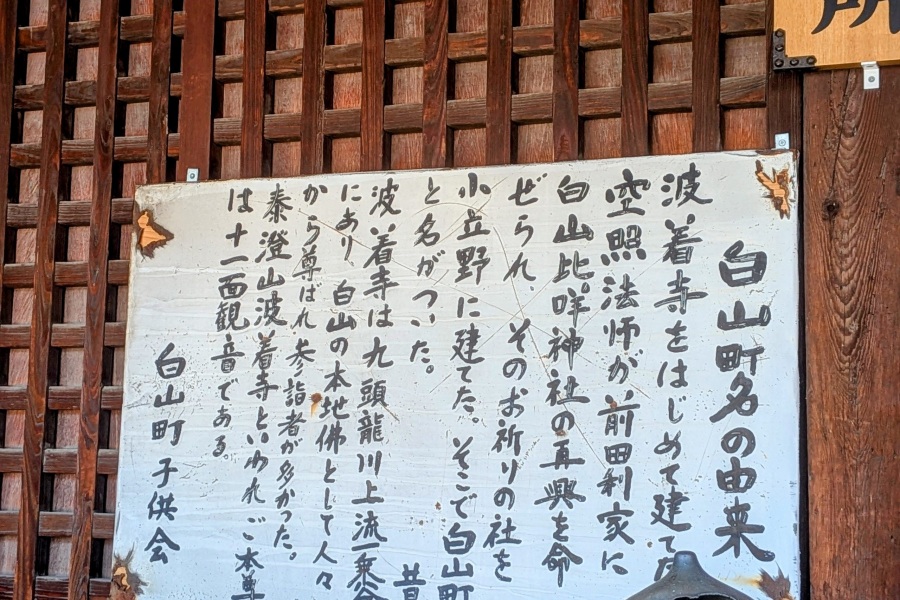 所
白山町名の由来
波着寺をはじめて建てた
空照法師が、前田利家に
白山比咩神社の再興を命
ぜられ、そのお祈りの社を
小立野に建てた。そこで白山町
と名がついた。 昔
波着寺は九頭龍川上流一乗谷
にあり、白山の本地佛として人々
から尊ばれ参詣者が多かった。
泰澄山波着寺といわれご本尊
は十一面観音である。
白山町子供会